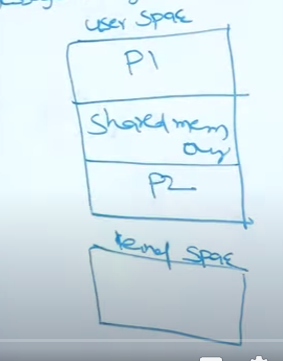 user space
P1
Shared mem
ory
P2
kernel space